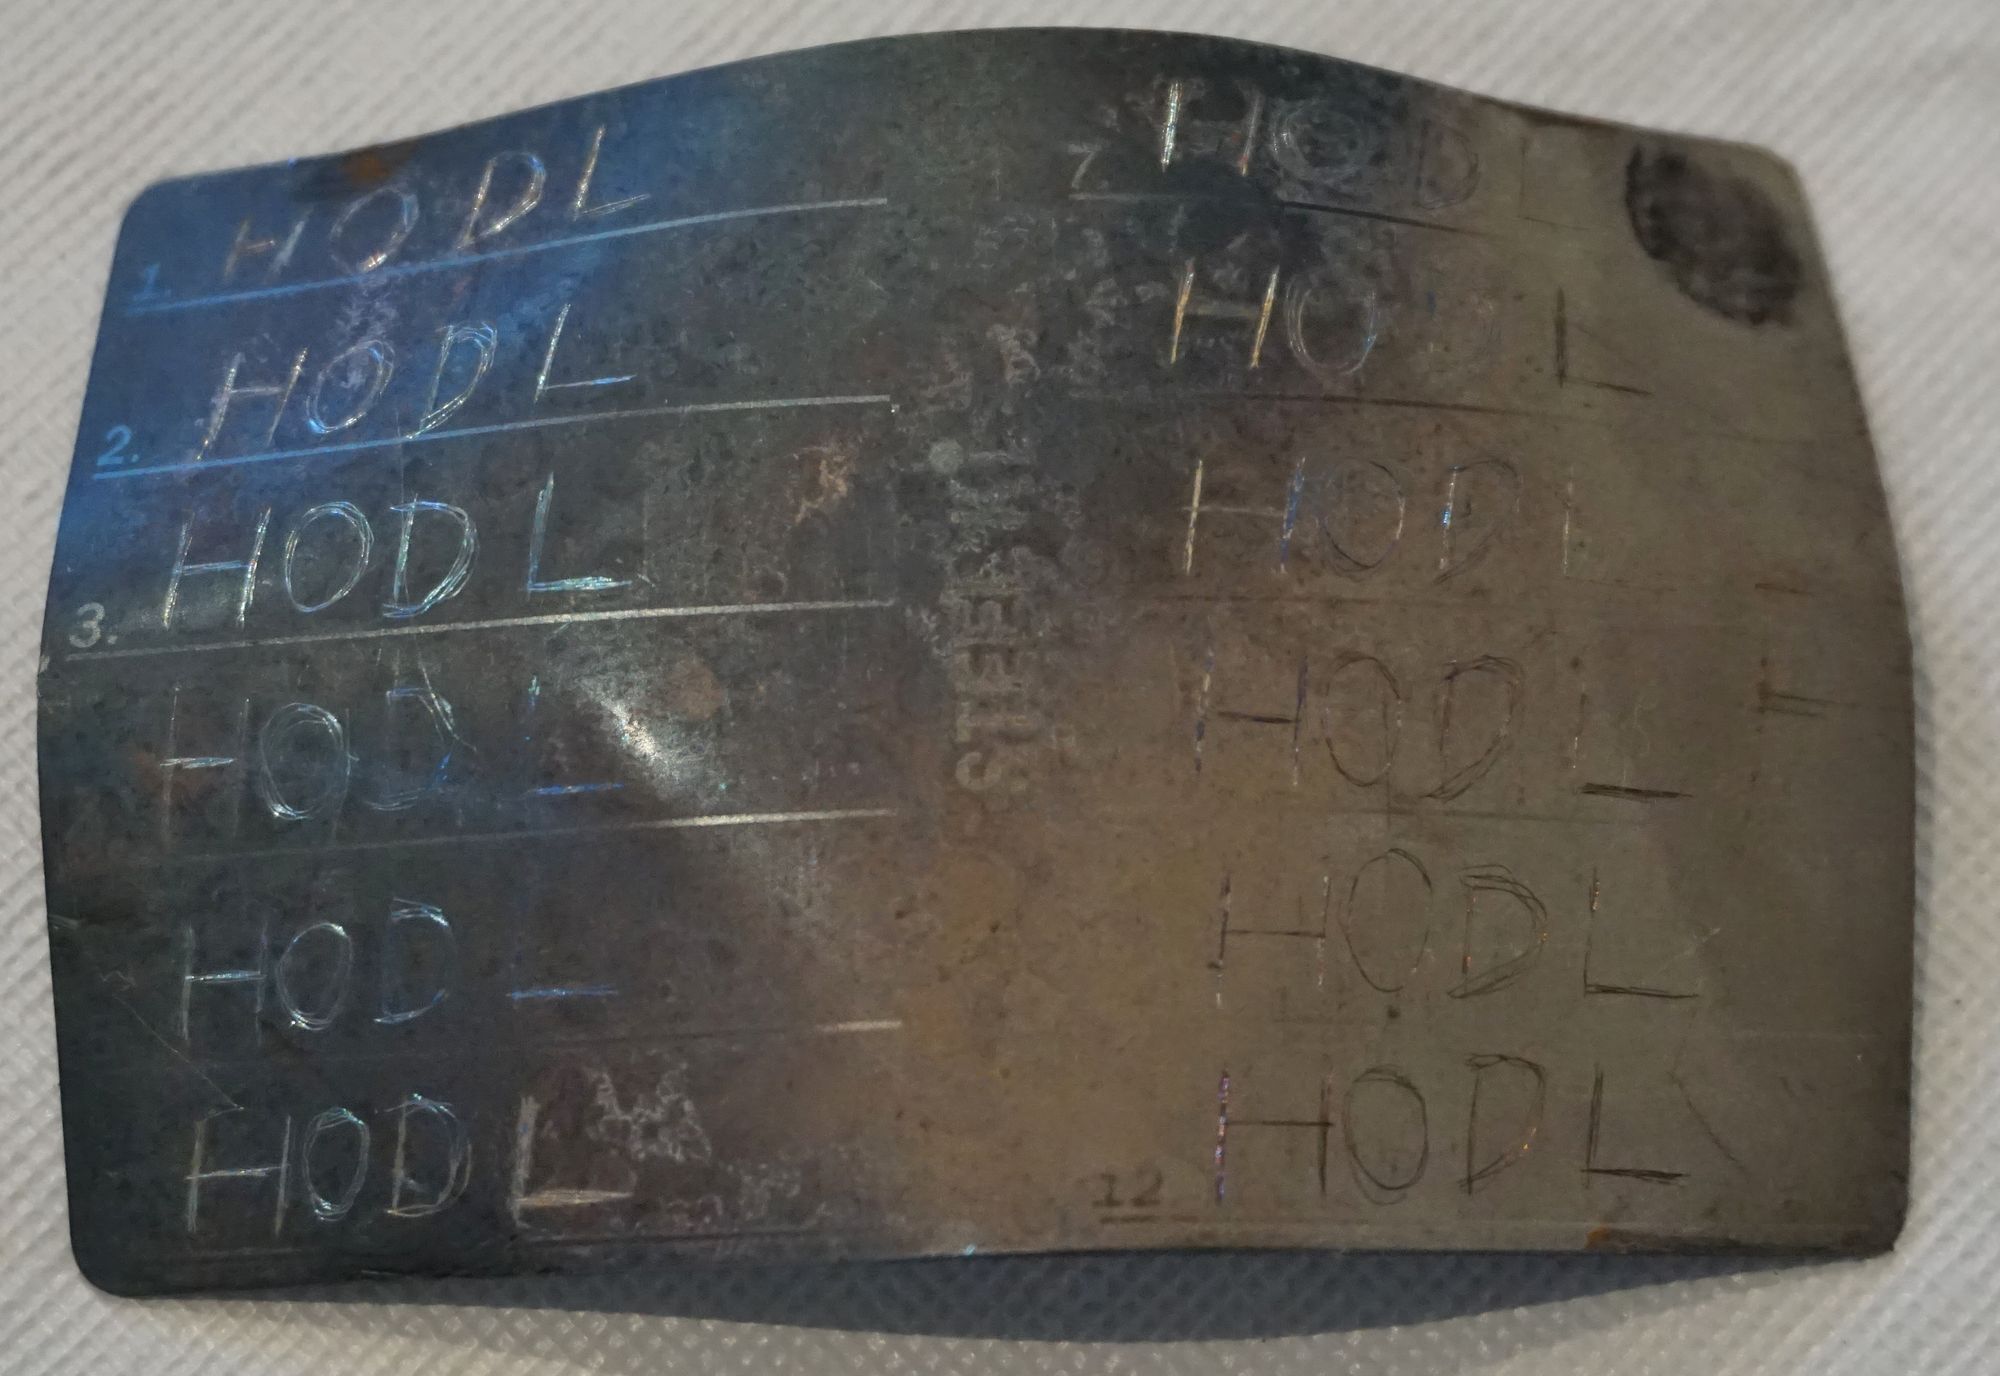 1. HODL
2. HODL
3. HODL
HODL
HODL
HODL
7. HODL
HODL
HODL
HODL
HODL
12 HODL